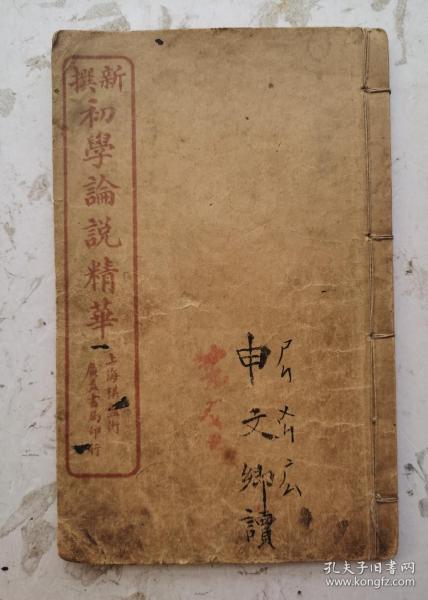 新撰
初學論說精華
上海棋盤街
廣益書局印行
申文鄉讀
孔夫子旧书网
www.kongfz.com